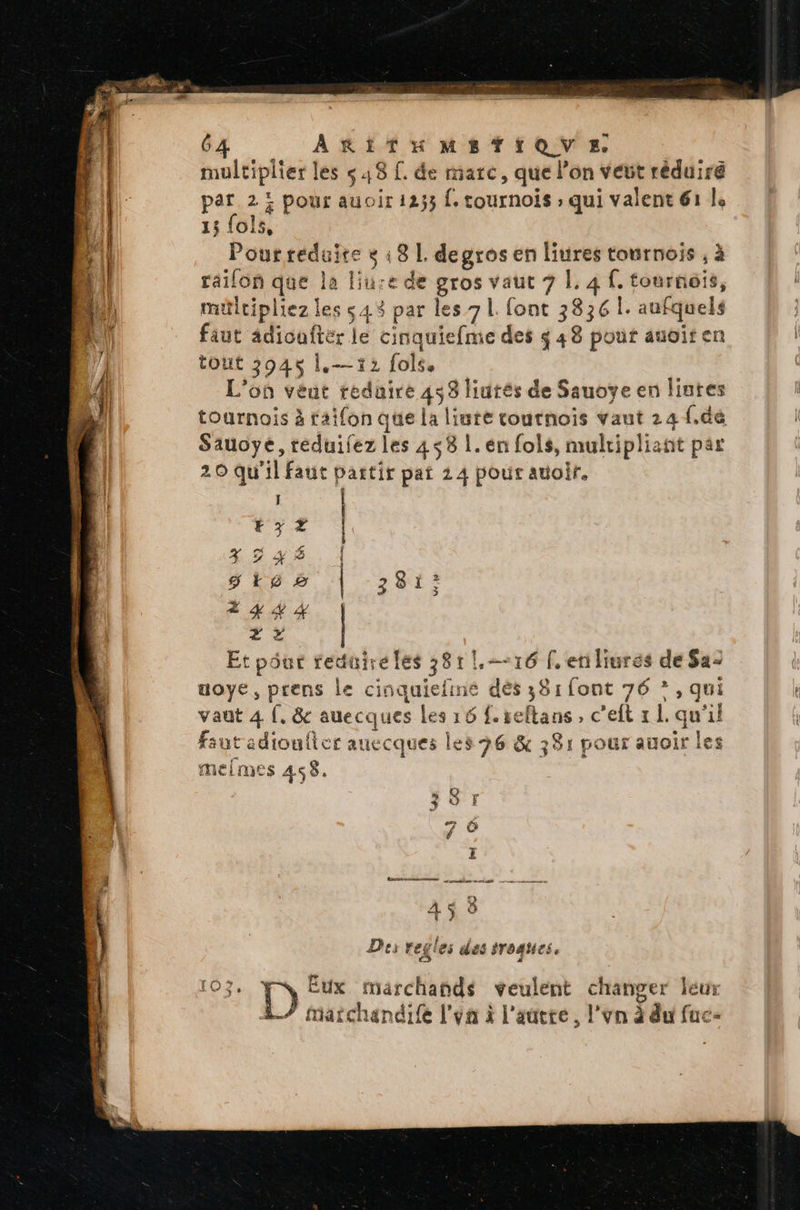 64 ARITHMETIQVE.
multiplier les 548 ſ. de marc, que l'on veut réduire
par 2 1/4 pour auoir 1233 ſ. tournois, qui valent 61 l.
13 ſols.
Pour reduire 548 l. de gros en liures tournois, à
raiſon que la liure de gros vaut 7 l. 4 ſ. tournois,
multipliez les 548 par les 7 l. ſont 3836 l. auſquels
faut adiouſter le cinquieſme des 548 pour auoir en
tout 3945 l.—12 ſols.
L'on veut reduire 458 liures de Sauoye en liures
tournois à raiſon que la liure tournois vaut 24 ſ. de
Sauoye, reduiſez les 458 l. en ſols, multipliant par
20 qu'il faut partir par 24 pour auoir.
1
1 3 2
9 1 6 0 | 381 2/3
2 4 4 4
2 2
Et pour reduire les 381 l.—16 ſ. en liures de Sa-
uoye, prens le cinquieſme des 381 ſont 76 1, qui
vaut 4 ſ. & auecques les 16 ſ. reſtans, c'eſt 1 l. qu'il
faut adiouſter auecques les 76 & 381 pour auoir les
meſmes 458.
381
76
1
458
Des regles des troques.
103. DEux marchands veulent changer leur
marchandiſe l'vn à l'autre, l'vn à du ſuc-